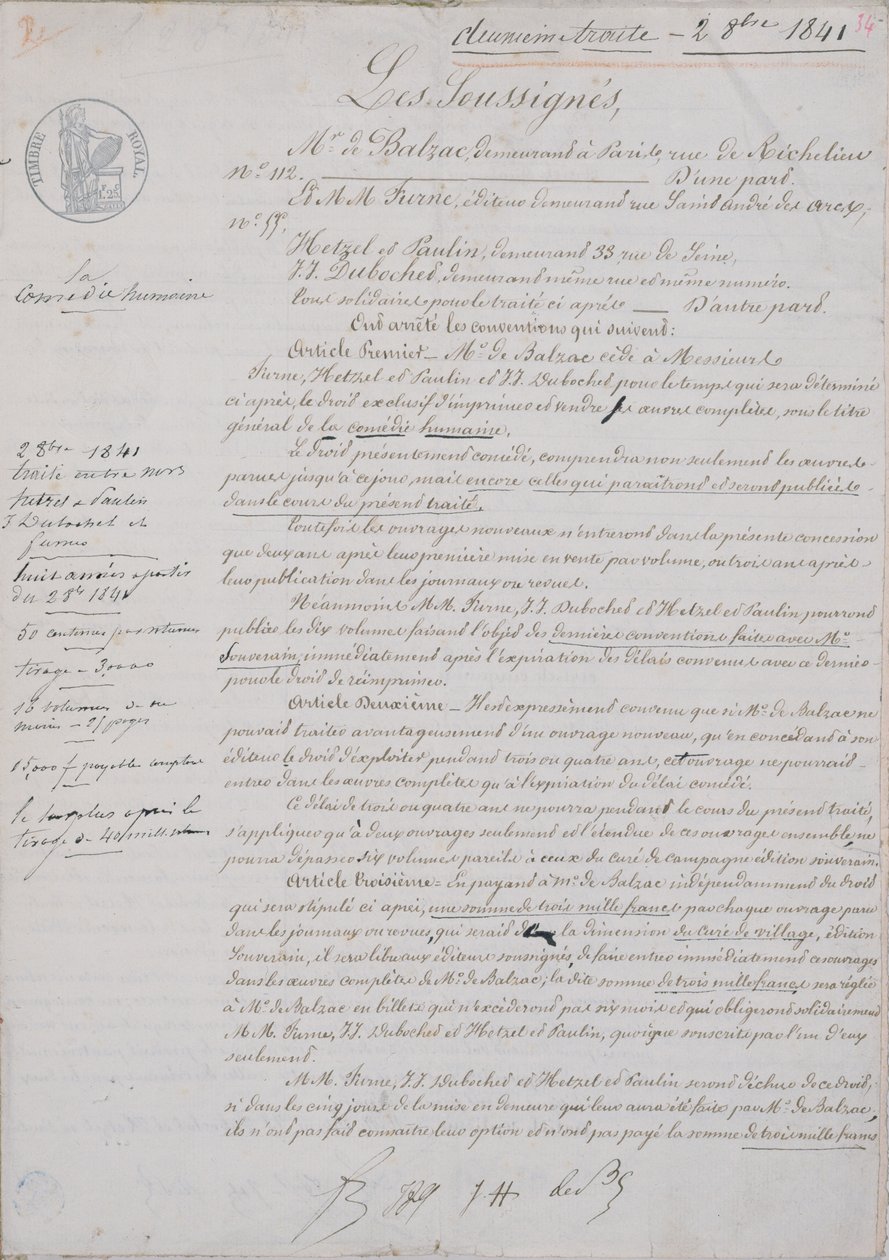 deuxieme traité - 2 8bre 1841
34
Les Soussignés,
TIMBRE ROYAL.
Mr de Balzac, demeurant à Paris, rue de Richelieu
No 112. D'une part.
Et MM Furne, éditeur demeurant rue Saint André des Arcs,
no 55,
Hetzel et Paulin, demeurant 33 rue de Seine,
J.J. Dubochet, demeurant même rue et même numéro.
Tous solidaires pour le traité ci après D'autre part.
Ont arrêté les conventions qui suivent:
Article Premier _ Mr de Balzac cède à Messieurs
Furne, Hetzel et Paulin et J.J. Dubochet, pour le temps qui sera déterminé
ci après, le droit exclusif d'imprimer et vendre ses œuvres complètes, sous le titre
général de la comédie humaine.
Le droit présentement concédé, comprendra non seulement les œuvres
parues jusqu'à ce jour, mais encore celles qui paraîtront et seront publiées
dans le cours du présent traité.
Toutefois les ouvrages nouveaux n'entreront dans la présente concession
que deux ans après leur première mise en vente par volume, ou trois ans après
leur publication dans les journaux ou revues.
Néanmoins MM. Furne, J.J. Dubochet et Hetzel et Paulin pourront
publier les dix volumes faisant l'objet des dernières conventions faites avec Mr
Souverain, immédiatement après l'expiration des délais convenus avec ce dernier
pour le droit de réimprimer.
Article Deuxième - Il est expressément convenu que si Mr de Balzac ne
pouvait traiter avantageusement d'un ouvrage nouveau, qu'en concédant à son
éditeur le droit d'exploiter pendant trois ou quatre ans, cet ouvrage ne pourrait
entrer dans les œuvres complètes qu'à l'expiration du délai concédé.
Ce délai de trois ou quatre ans ne pourra pendant le cours du présent traité,
s'appliquer qu'à deux ouvrages seulement et l'étendue de ces ouvrages ensemble, ne
pourra dépasser six volumes pareils à ceux du curé de campagne édition souverain.
Article Troisième = En payant à Mr de Balzac indépendamment du droit
qui sera stipulé ci après, une somme de trois mille francs par chaque ouvrage paru
dans les journaux ou revues, qui serait de la dimension du Curé de village, édition
Souverain, il sera libre aux éditeurs soussignés, de faire entrer immédiatement ces ouvrages
dans les œuvres complètes de Mr de Balzac; la dite somme de trois mille francs sera réglée
à Mr de Balzac en billets qui n'excèderont pas six mois et qui obligeront solidairement
MM. Furne, J.J. Dubochet et Hetzel et Paulin, quoique souscrits par l'un d'eux
seulement.
MM. Furne, J.J. Dubochet et Hetzel et Paulin seront déchus de ce droit,
si dans les cinq jours de la mise en demeure qui leur aura été faite par Mr de Balzac,
ils n'ont pas fait connaître leur option et n'ont pas payé la somme de trois mille francs
JH de B
la
Comedie humaine
2 8bre 1841
traité entre mrs
hetzel & Paulin
J Dubochet et
furne
huit années a partir
du 2 8bre 1841
50 centimes par volume
tirage - 3,000
15,000 f payable comptant
le surplus après le
tirage de 40 mill